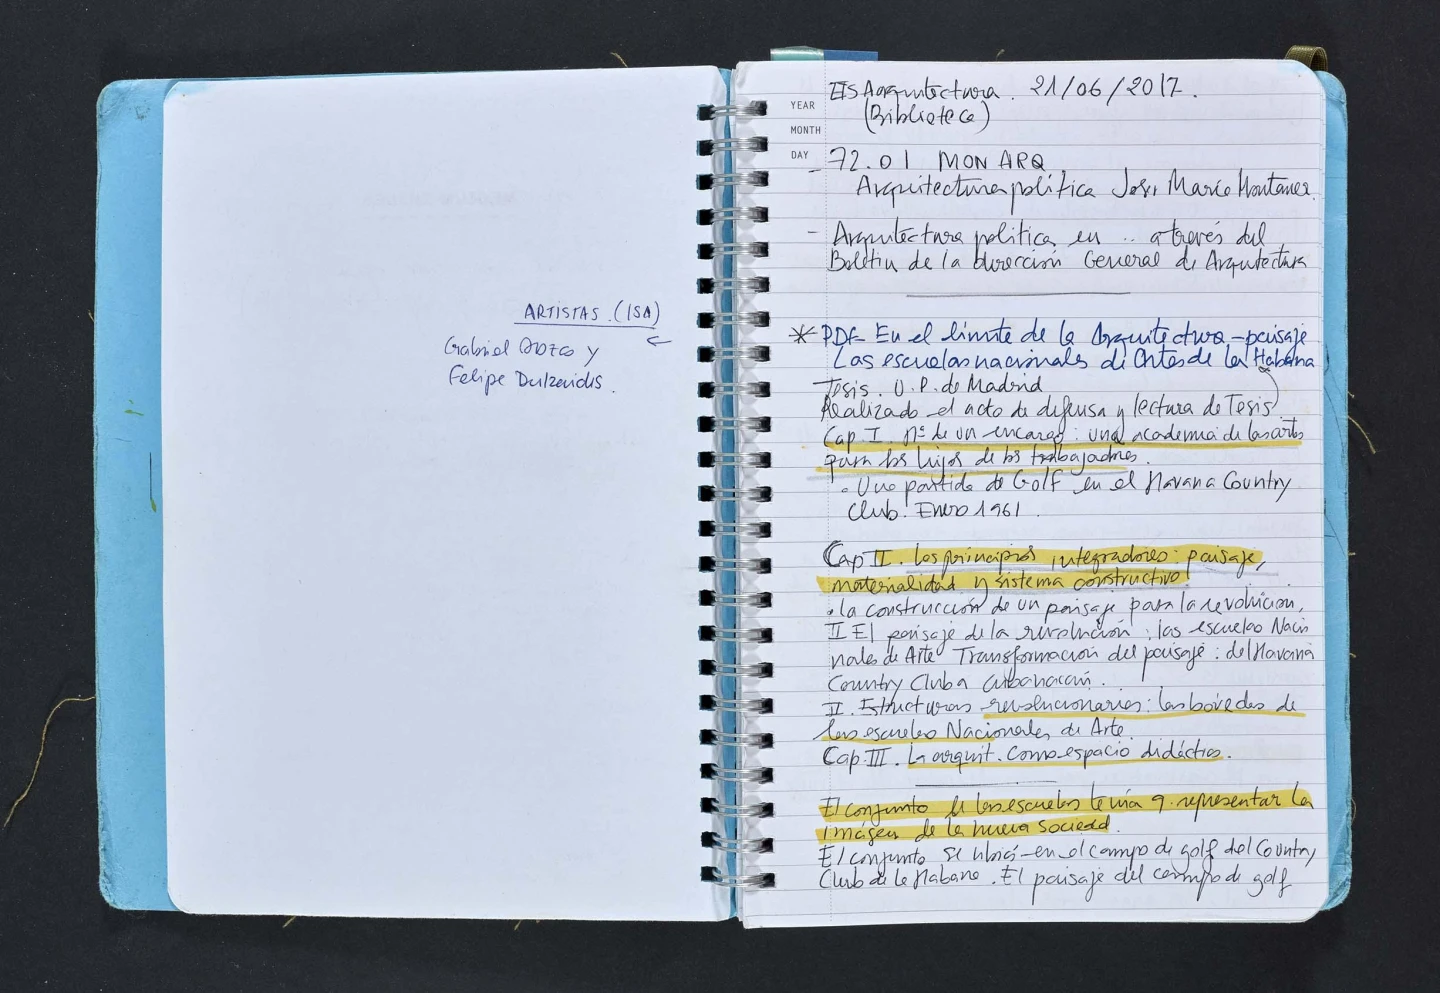 ARTISTAS. (ISA)
Gabriel y
Felipe Dulzaidis.
YEAR
MONTH
DAY
ETS Arquitectura. 21/06/2017.
(Biblioteca)
- 72.01 MON ARQ
Arquitectura política Josep María Montaner.
- Arquitectura política en .. a través del
Boletín de la dirección General de Arquitectura
* PDF En el límite de la Arquitectura-paisaje
Las escuelas nacionales de Artes de la Habana
Tesis. U.P. de Madrid
Realizado el acto de defensa y lectura de Tesis
Cap. I. de un encargo: una academia de las artes
para los hijos de los trabajadores.
. Una partida de Golf en el Havana Country
Club. Enero 1961.
Cap II. Los principios integradores: paisaje,
materialidad y sistema constructivo
. La construcción de un paisaje para la revolución,
II El paisaje de la revolución; las escuelas Nacio
nales de Arte Transformación del paisaje: del Havana
Country Club a Cubanacán.
II. Estructuras revolucionarias: las bóvedas de
las escuelas Nacionales de Arte.
Cap. III. La arquit. como espacio didáctico.
El conjunto de las escuelas tenía q. representar la
imágen de la nueva sociedad.
El conjunto se ubicó en el campo de golf del Country
Club de la Habana. El paisaje del campo de golf